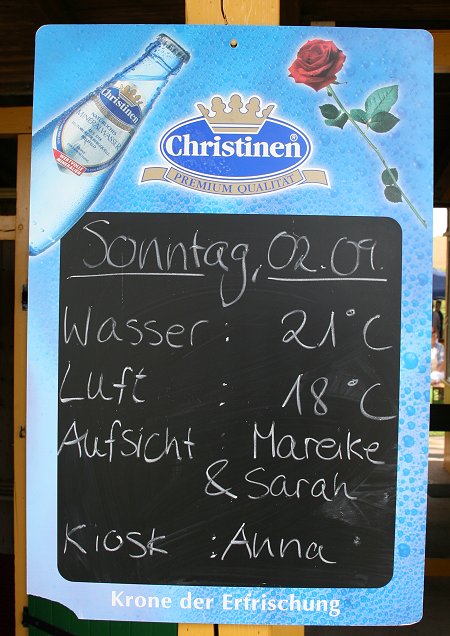 Christinen
MINERALWASSER
Christinen®
PREMIUM QUALITÄT
Sonntag, 02.09.
Wasser: 21°C
Luft : 18°C
Aufsicht: Mareike
& Sarah
Kiosk : Anna
Krone der Erfrischung